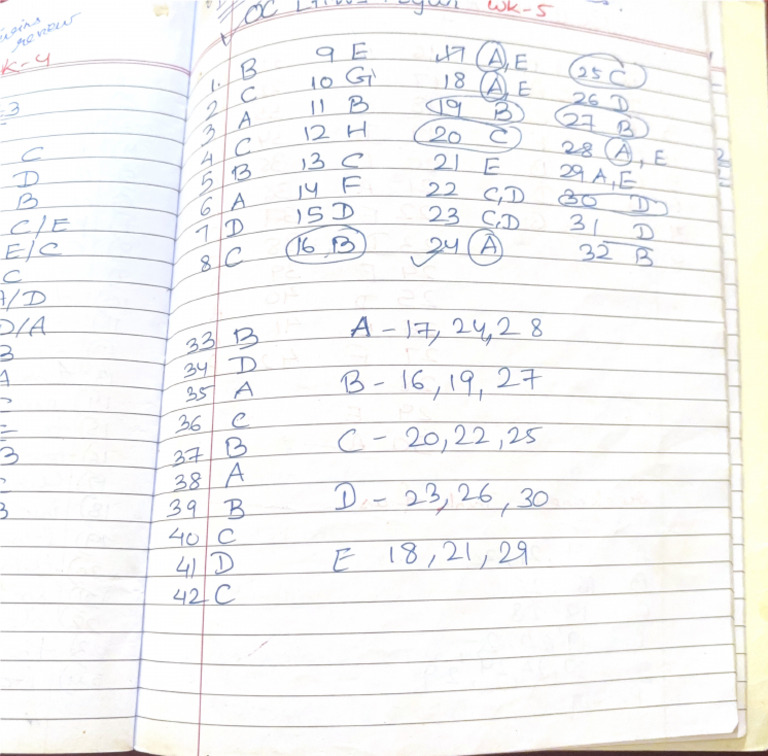 review
K-4
3
C
D
B
C/E
E/C
C
A/D
D/A
B
A
B
B
OC WK-5
1. B 9 E 17 A, E 25 C
2 C 10 G 18 A, E 26 D
3 A 11 B 19 B 27 B
4 C 12 H 20 C 28 A, E
5 B 13 C 21 E 29 A, E
6 A 14 F 22 C, D 30 D
7 D 15 D 23 C, D 31 D
8 C 16 B 24 A 32 B
33 B A - 17, 24, 28
34 D
35 A B - 16, 19, 27
36 C
37 B C - 20, 22, 25
38 A
39 B D - 23, 26, 30
40 C
41 D E 18, 21, 29
42 C